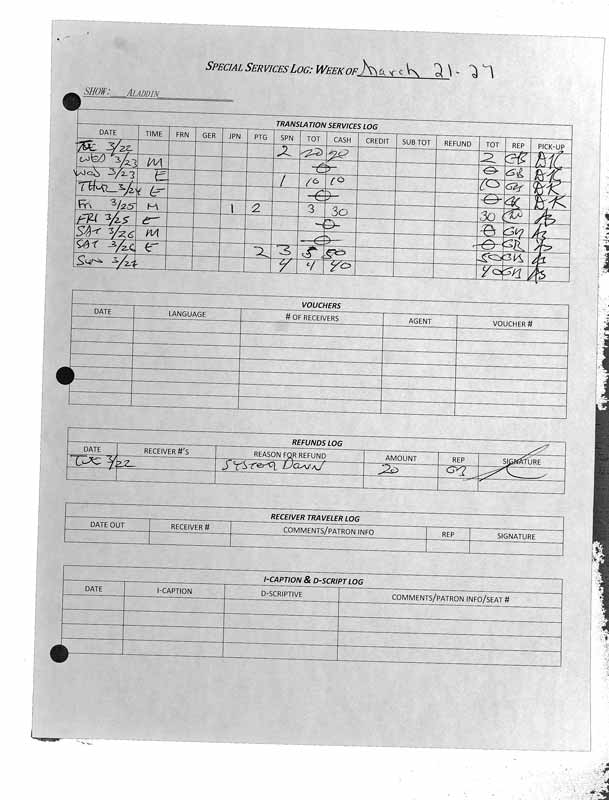 SPECIAL SERVICES LOG: WEEK OF March 21-27
SHOW: ALADDIN
TRANSLATION SERVICES LOG
DATE TIME FRN GER JPN PTG SPN TOT CASH CREDIT SUB TOT REFUND TOT REP PICK-UP
TUE 3/22 2 20 20 2 GB DK
WED 3/23 M 0 0 GB DK
WED 3/23 E 1 10 10 10 GB DK
THUR 3/24 E 0 0 GB DK
Fri 3/25 M 1 2 3 30 30 GB AS
FRI 3/25 E 0 0 GB AS
SAT 3/26 M 0 0 GB AS
SAT 3/26 E 2 3 5 50 50 GB AS
Sun 3/27 4 4 40 40 GB AS
VOUCHERS
DATE LANGUAGE # OF RECEIVERS AGENT VOUCHER #
REFUNDS LOG
DATE RECEIVER #'S REASON FOR REFUND AMOUNT REP SIGNATURE
TUE 3/22 SYSTEM DOWN 20 GB
RECEIVER TRAVELER LOG
DATE OUT RECEIVER # COMMENTS/PATRON INFO REP SIGNATURE
I-CAPTION & D-SCRIPT LOG
DATE I-CAPTION D-SCRIPTIVE COMMENTS/PATRON INFO/SEAT #